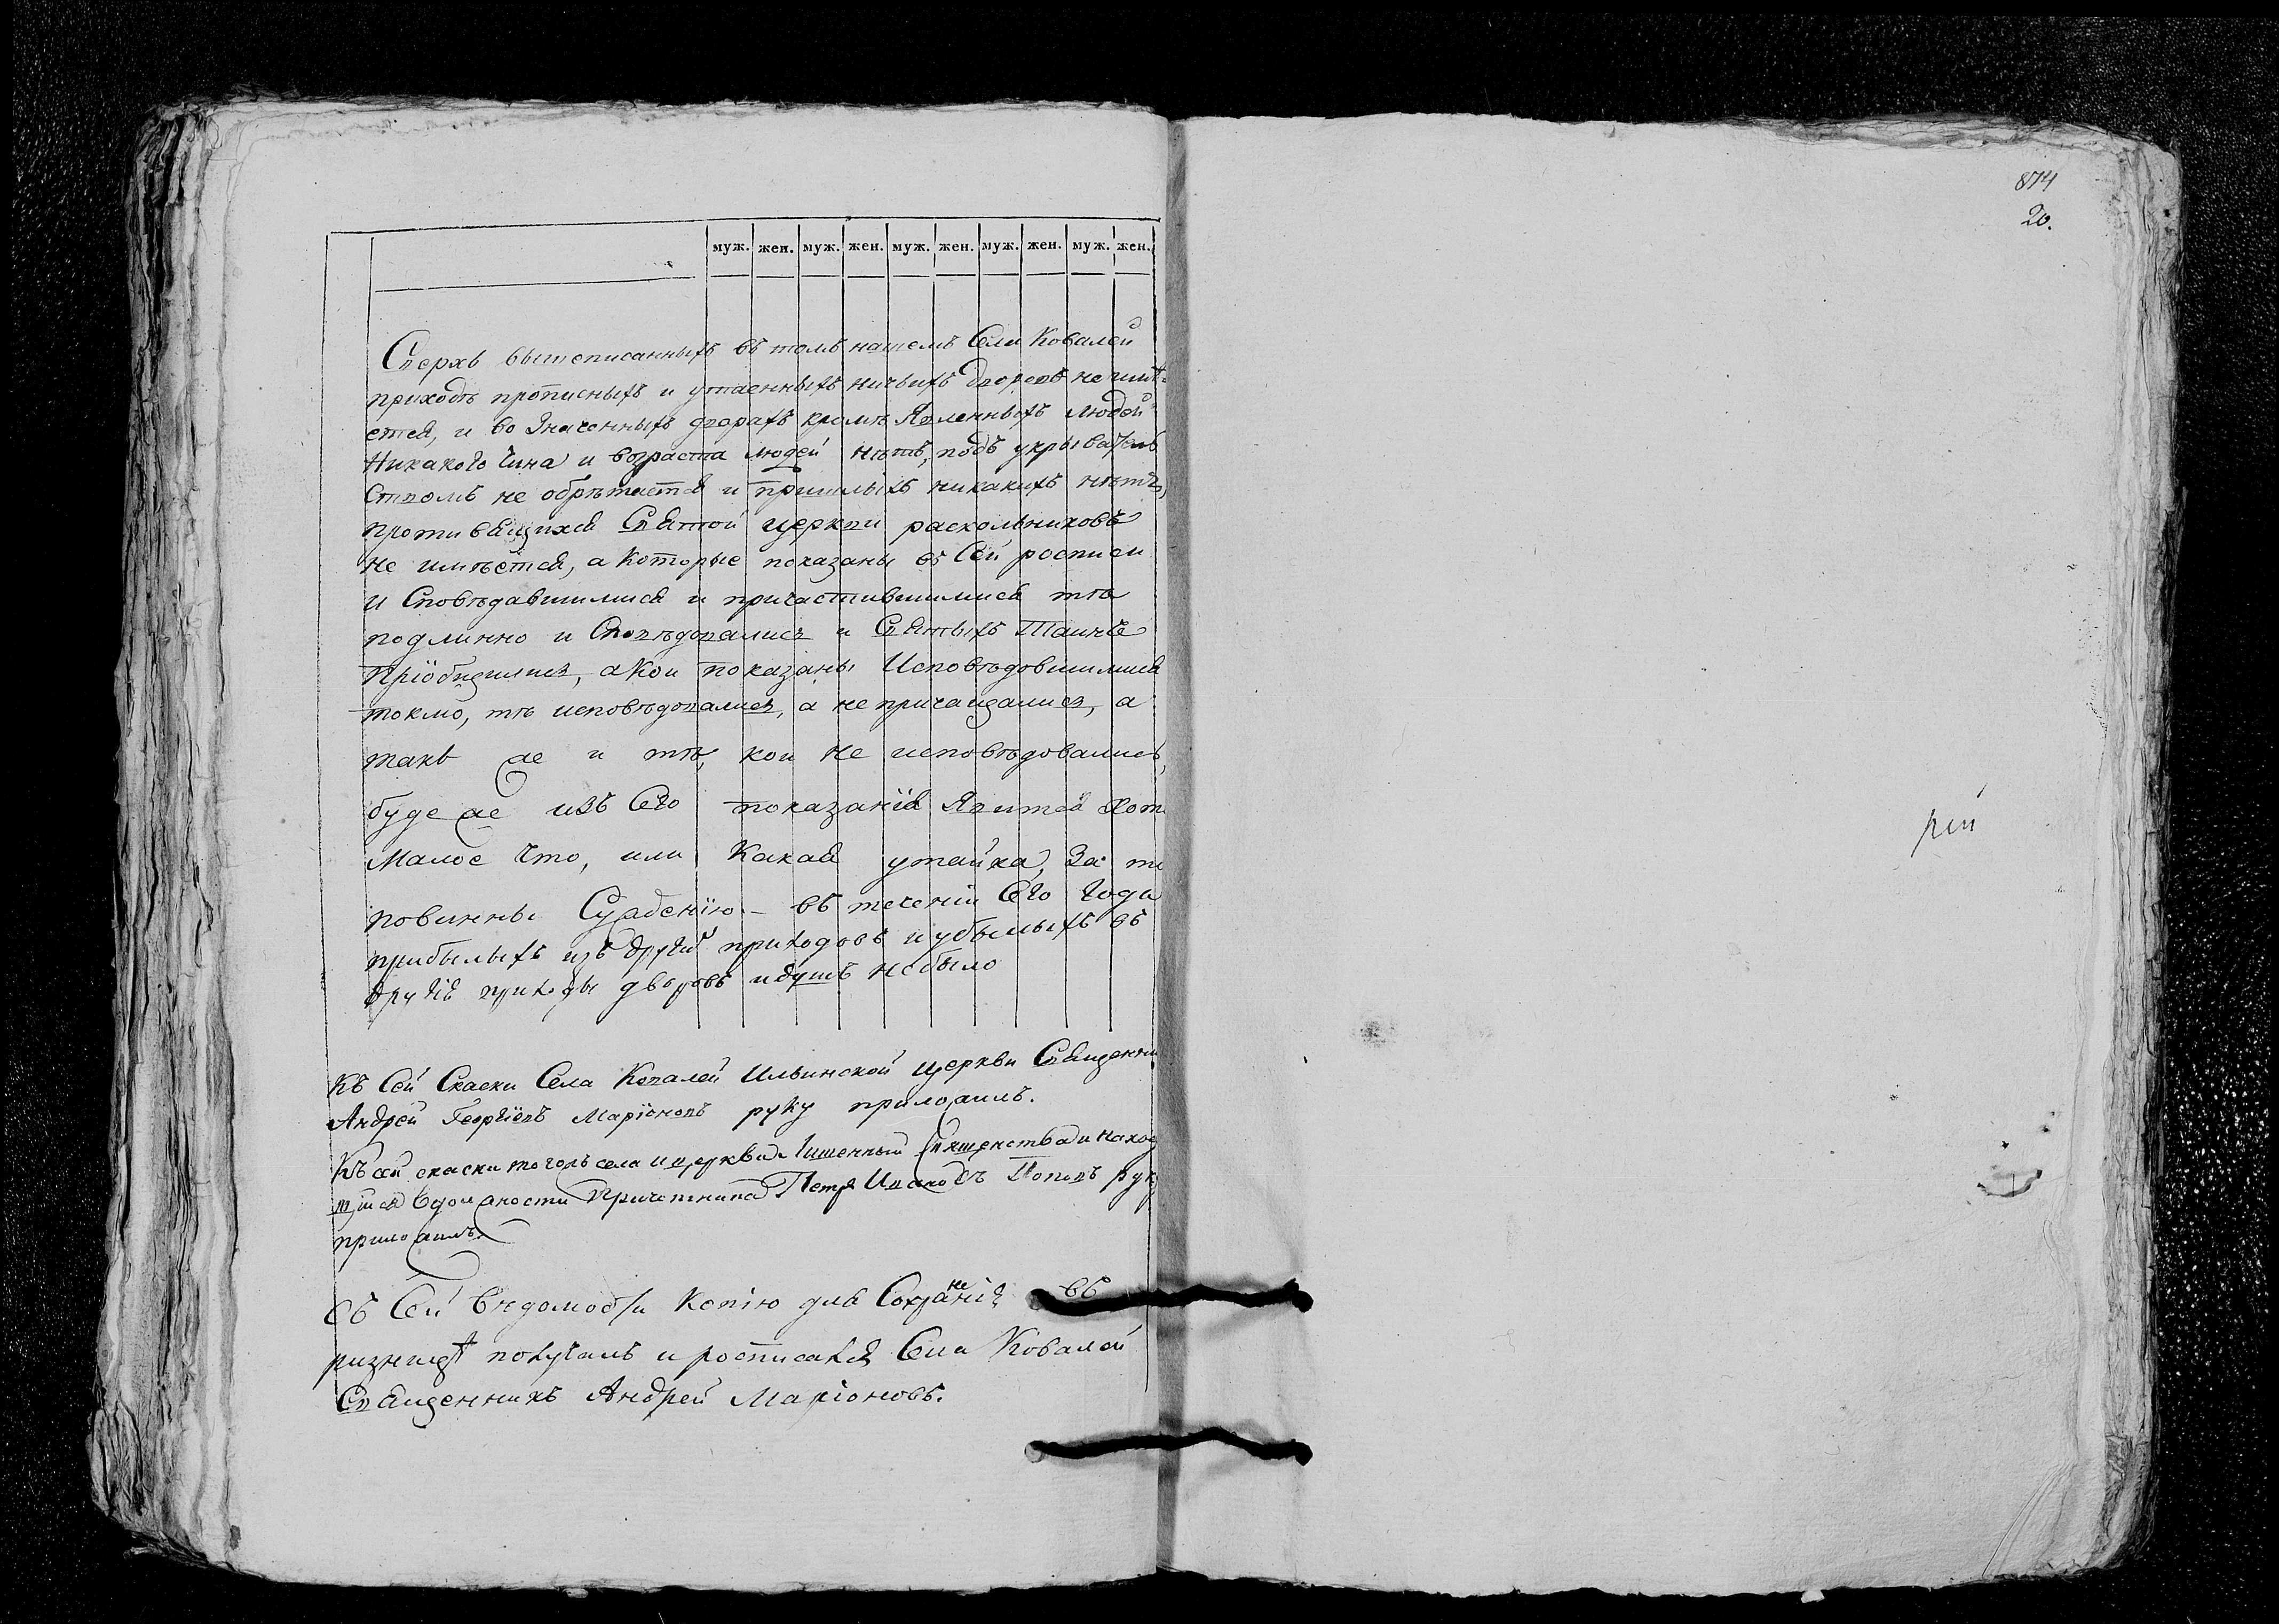 муж. жен. муж. жен. муж. жен. муж. жен. муж. жен.
Сверхъ вышеписанныхъ въ томъ нашемъ Сели Ковалей
приходѣ прописныхъ и утаенныхъ ничьихъ дворовъ не имѣ-
ется, и во значенныхъ дворахъ кромѣ Явленныхъ людей
Никакого чина и возраста людей нѣтъ, подъ укрыватель
ствомъ не обрѣтается и пришлыхъ никакихъ нѣтъ,
противящихся Святой церкви раскольниковъ
не имѣется, а которые показаны въ Сей росписи
И Сповѣдавшимися и причастившимися тѣ
подлинно и Сповѣдовались и Святыхъ Таинъ
Пріобщились, а кои показаны Исповѣдовшимися
токмо, тѣ исповѣдовались, а не причащались, а
такъ же и тѣ, кои не исповѣдовались,
буде же изъ Сего показанія Явится хотя
Малое что, или Какая утайка, За то
повинны Суждению – въ теченіи Сего года
прибылыхъ изъ другихъ приходовъ и убылыхъ въ
другіе приходы дворовъ и душъ не было
Къ Сей Скаски Села Ковалей Ильинской церкви Священни
Андрей Георгіевъ Маріоновъ руку приложилъ.
Къ сей скаски тогожъ села и церкви Лишенный Священства и наход
щійся в должности Причетника Петръ Попов руку
приложилъ
Съ Сей Вѣдомости Копію для Сохраненія въ
ризницѣ получилъ и росписался Села Ковалей
Священникъ Андрей Маріоновъ.
874
20.